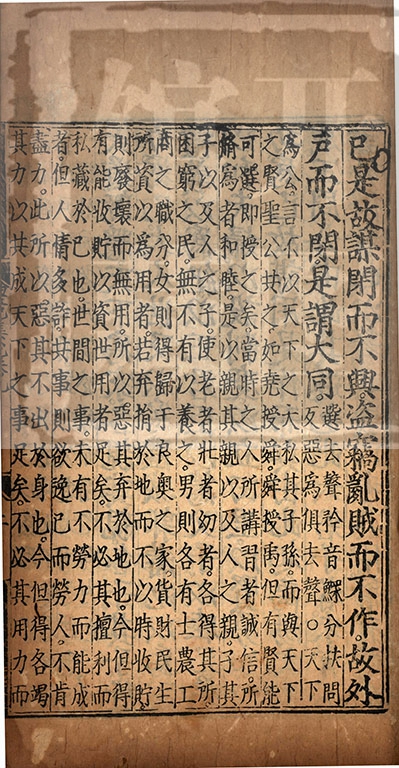 己是故謀閉而不興盜竊亂賊而不作故外
戶而不閉是謂大同
選去聲矜音鰥分扶問
反惡爲俱去聲○天下
爲公言不以天下之大私其子孫而與天下
之賢聖公共之如堯授舜舜授禹但有賢能
可選即授之矣當時之人所講習者誠信所
脩爲者和睦是以親其親以及人之親子其
子以及人之子使老者壯者幼者各得其所
困窮之民無不有以養之男則各有士農工
商之職分女則得歸于良奧之家貨財民生
所資以爲用者若棄捐於地而不以時收貯
則廢壞而無用所以惡其棄於地也今但得
有能收貯以資世用者足矣不必其擅利而
私藏於己也世間之事未有不勞力而能成
者但人情多詐共事則欲逸己而勞人不肯
盡力此所以惡其不出於身也今但得各竭
其力以共成天下之事足矣不必其用力而